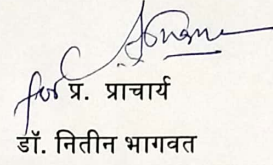 for प्र. प्राचार्य
डॉ. नितीन भागवत